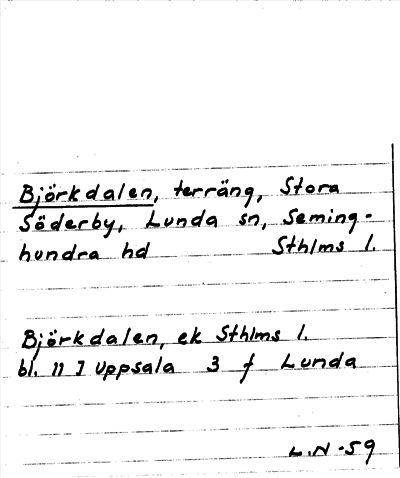 Björkdalen, terräng, Stora
Söderby, Lunda sn, Seming-
hundra hd Sthlms l.
Björkdalen, ek Sthlms l.
bl. 11 I Uppsala 3 f Lunda
L.N-59